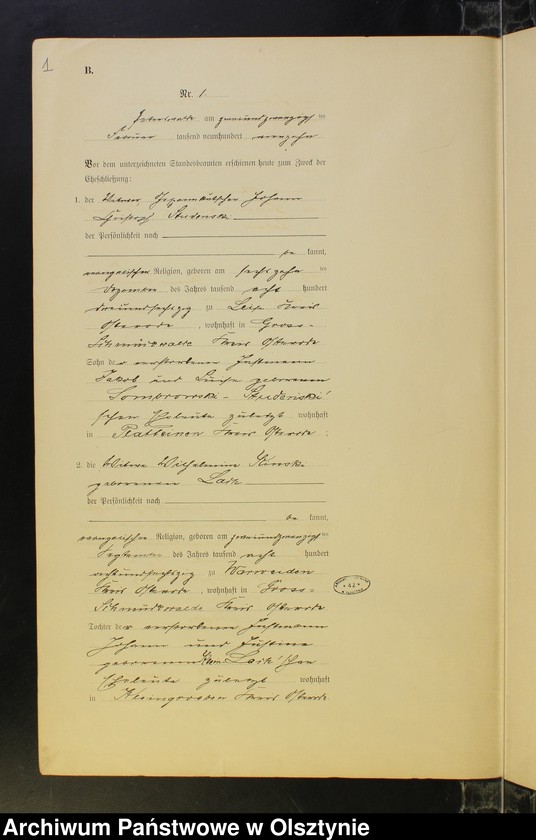 1
B.
Nr. 1.
am zweiundzwanzigsten
Februar tausend neunhundert vierzehn
Vor dem unterzeichneten Standesbeamten erschienen heute zum Zweck der
Eheschließung:
1. der Witwer Johann
Christoph
der Persönlichkeit nach
be kannt,
evangelischer Religion, geboren am sechszehn ten
Dezember des Jahres tausend acht hundert
dreiundsechszig zu Leip Kreis
Osterode, wohnhaft in Gross-
Schmückwalde Kreis Osterode
Sohn der verstorbenen Instmann
Jakob und Luise geborenen
schen Eheleute zuletzt wohnhaft
in Platteinen Kreis Osterode.
2. die Witwe Wilhelmine
geborenen
der Persönlichkeit nach
be kannt,
evangelischer Religion, geboren am zweiundzwanzigsten
September des Jahres tausend acht hundert
achtundsechszig zu Warweiden
Kreis Osterode, wohnhaft in Gross-
Schmückwalde Kreis Osterode
Tochter der verstorbenen Instmann
Johann und Justine
geborenen schen
Eheleute zuletzt wohnhaft
in Kleingröben Kreis Osterode
Archiwum Państwowe w Olsztynie